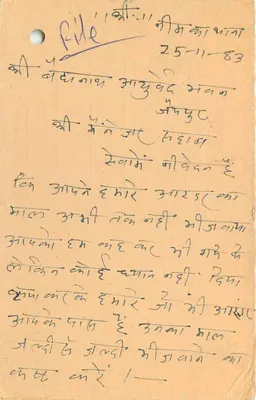 "श्री:"
नीमकाथाना
File
25-11-83
श्री बैद्यनाथ आयुर्वेद भवन
जयपुर
श्री मैनेजर साहब
सेवामें नीवेदन हैं
कि आपने हमारे आरडर का
माल अभी तक नही भीजवाया
आपको हम कह कर भी गये थे
लेकिन कोई ध्यान नही दिया
कृपा करके हमारे जो भी आरडर
आपके पास हैं उनका माल
जल्दी से जल्दी भीजवाने का
कष्ट करें ।—